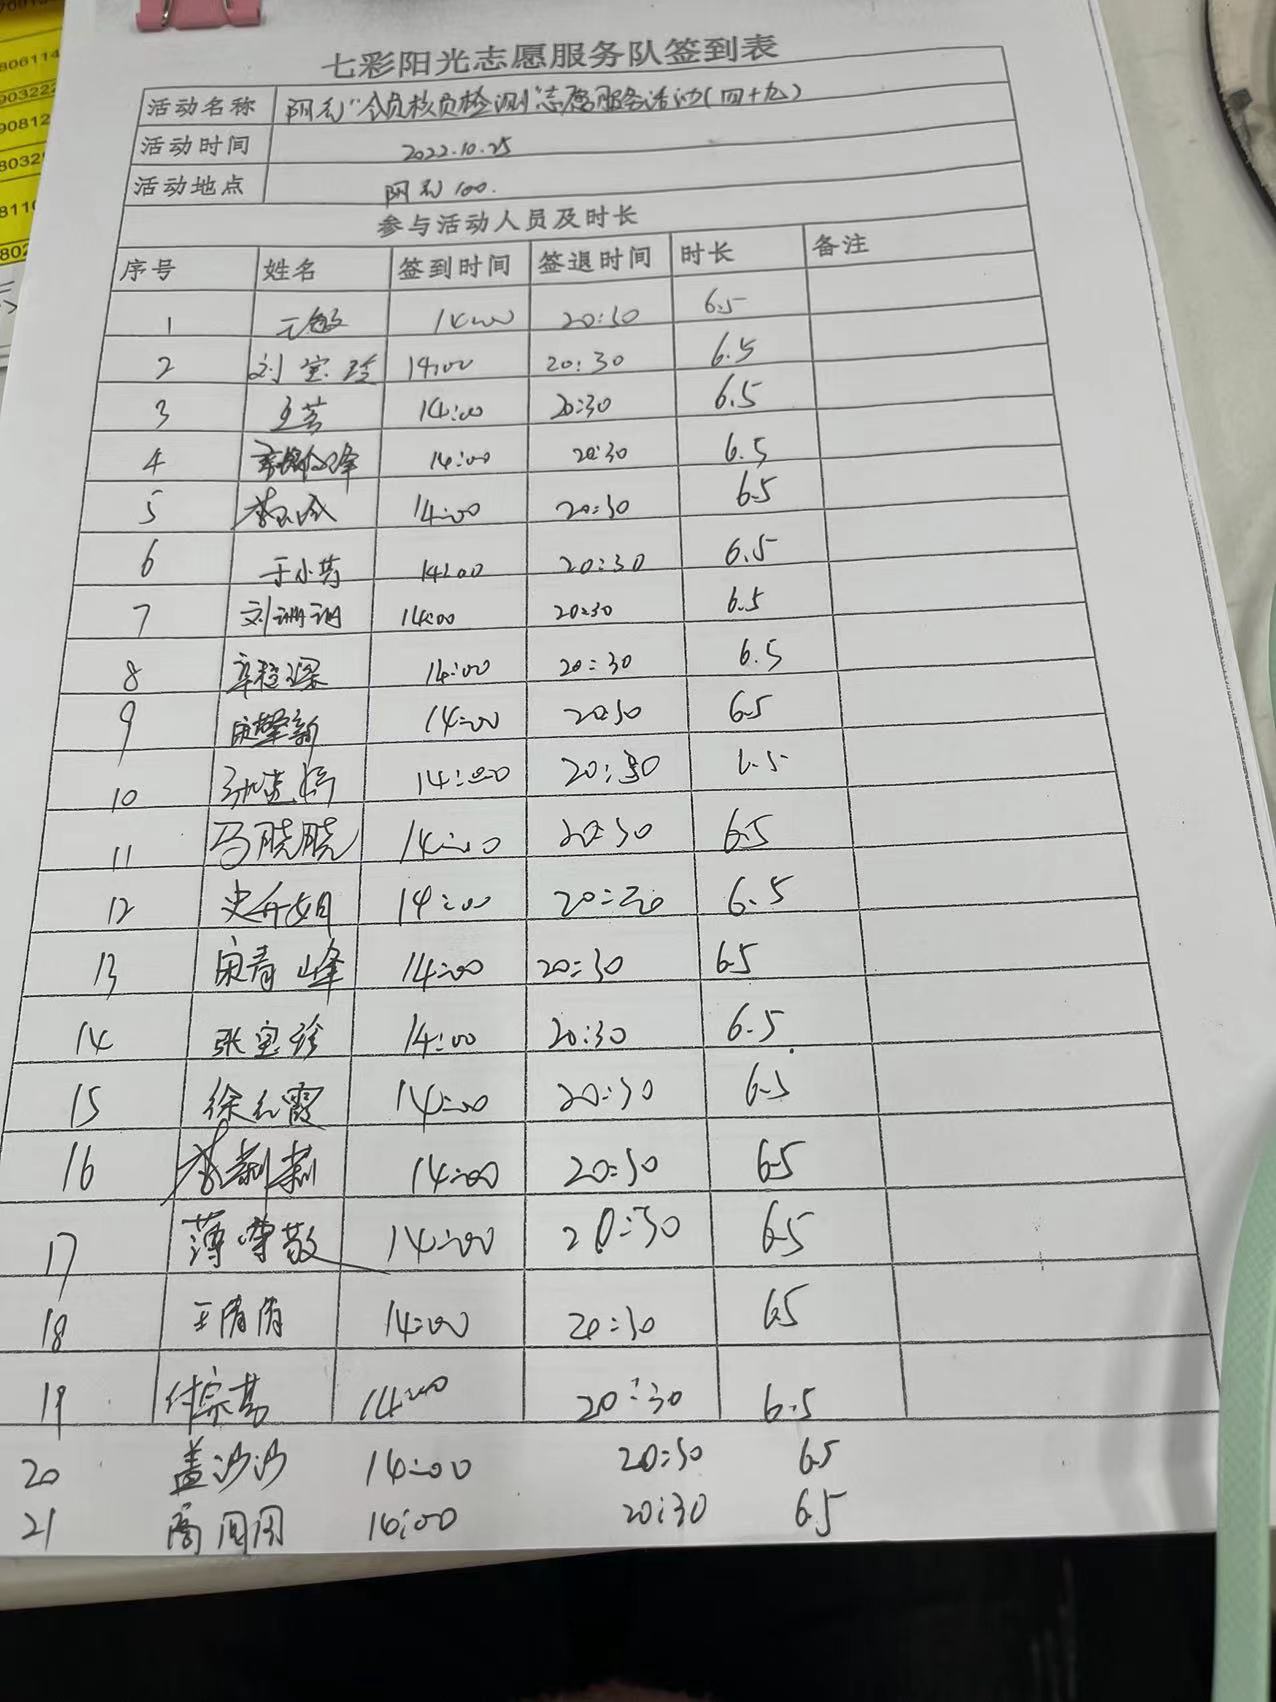 七彩阳光志愿服务队签到表
活动名称 阳光"全员核员检测"志愿服务活动(四十九)
活动时间 2022.10.25
活动地点 阳光100.
参与活动人员及时长
序号 姓名 签到时间 签退时间 时长 备注
1 14:00 20:30 6.5
2 刘宝玲 14:00 20:30 6.5
3 14:00 20:30 6.5
4 14:00 20:30 6.5
5 14:00 20:30 6.5
6 于小芳 14:00 20:30 6.5
7 刘珊珊 14:00 20:30 6.5
8 14:00 20:30 6.5
9 14:00 20:30 6.5
10 14:00 20:30 6.5
11 马晓晓 14:00 20:30 6.5
12 14:00 20:30 6.5
13 宋青峰 14:00 20:30 6.5
14 张宝珍 14:00 20:30 6.5
15 徐红霞 14:00 20:30 6.5
16 李莉莉 14:00 20:30 6.5
17 薄尊敬 14:00 20:30 6.5
18 王倩倩 14:00 20:30 6.5
19 付宗英 14:00 20:30 6.5
20 盖沙沙 14:00 20:30 6.5
21 20:30 6.5